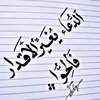 الدُّعَاءُ
يُغَيِّرُ الأَقْدَار
فَأَلِحُّوا